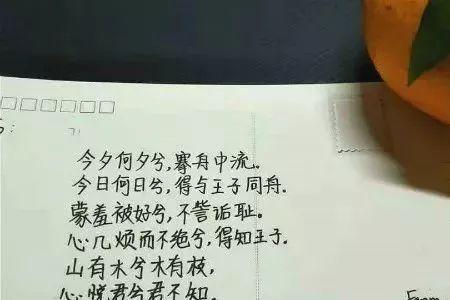 今夕何夕兮,搴舟中流.
今日何日兮,得与王子同舟.
蒙羞被好兮,不訾诟耻。
心几烦而不绝兮,得知王子.
山有木兮木有枝,
心悦君兮君不知.
From